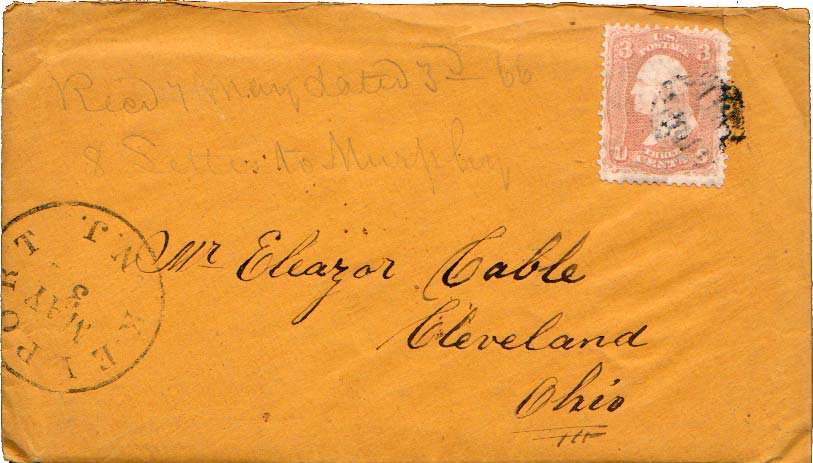 Recd 7 May dated 3d 66
Letter to Murphy
3 U.S. 3
POSTAGE
U
THREE
CENTS
PORT
MAY
3
Mr Eleazor Cable
Cleveland
Ohio